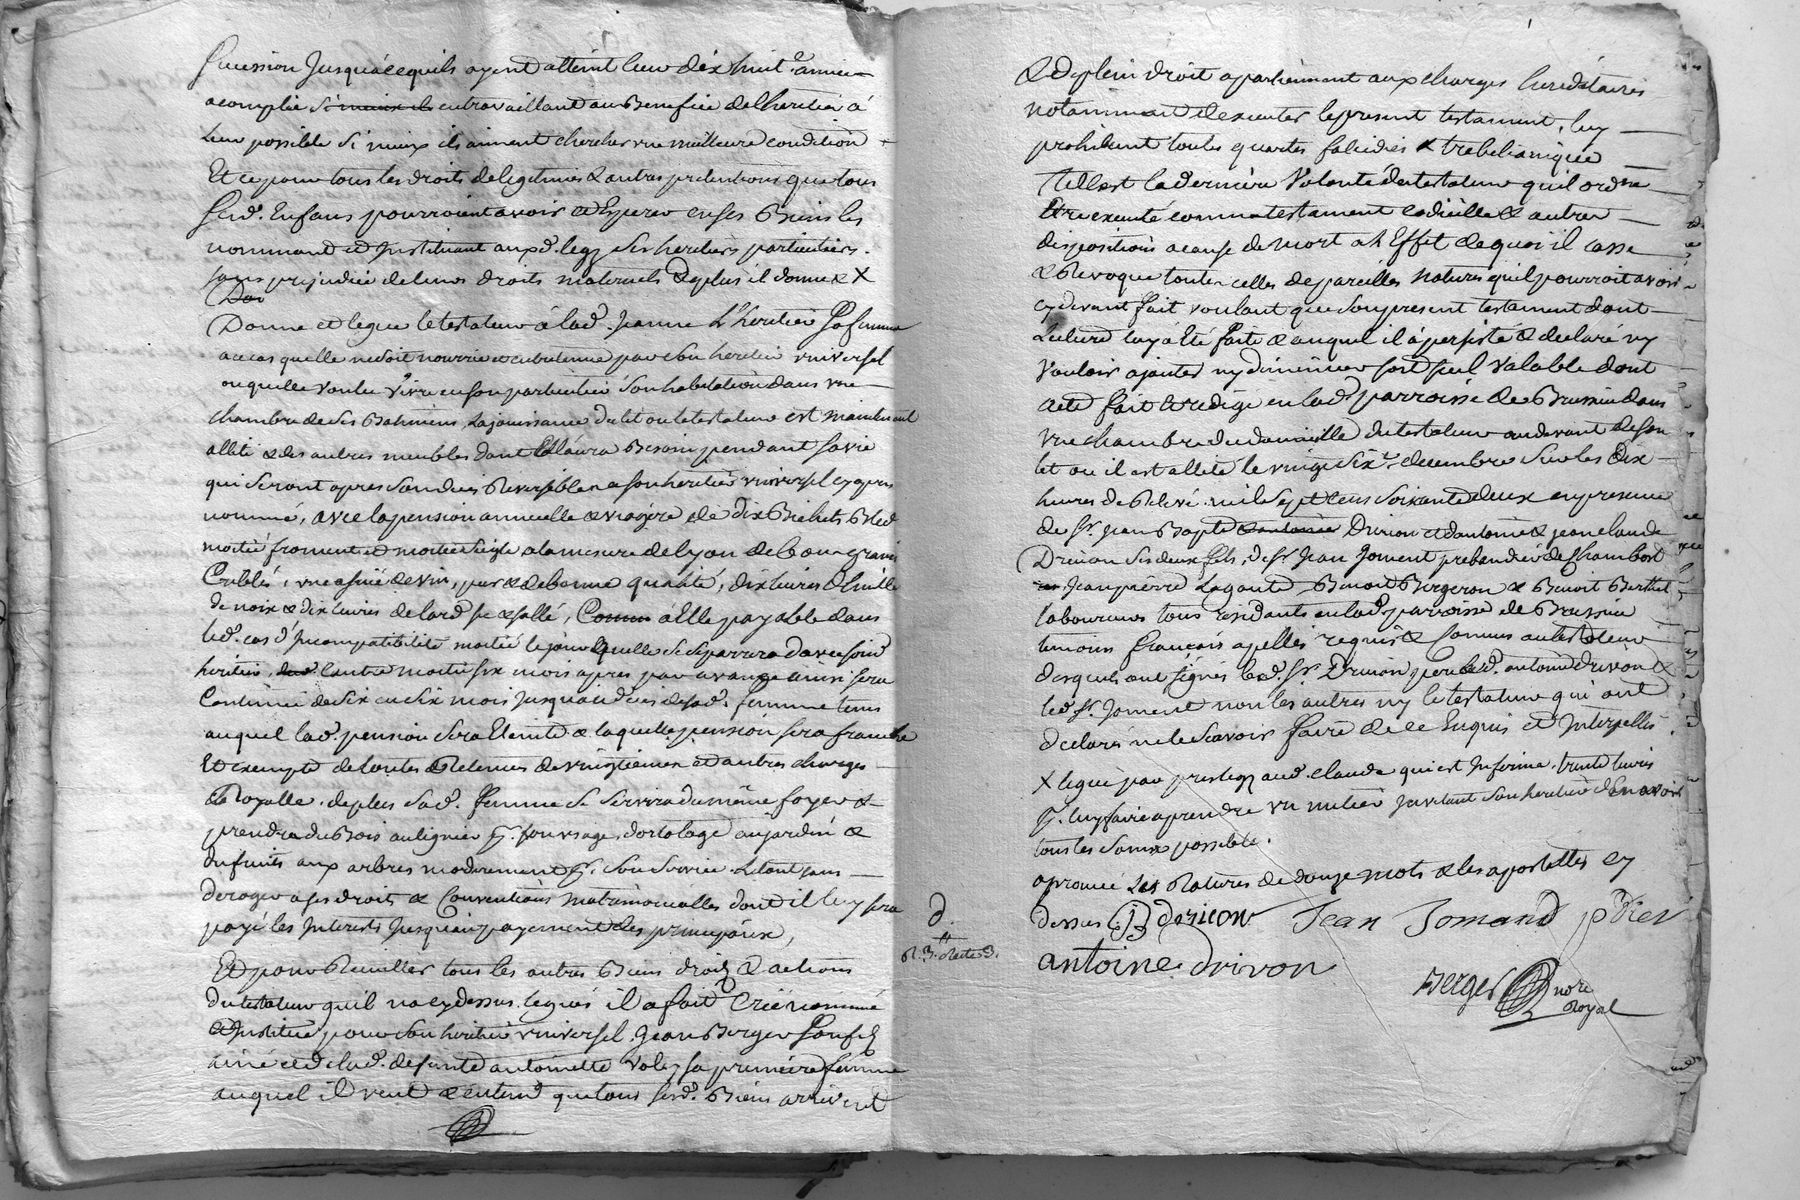 succession jusqu'a ce quils ayent atteint leur dix huit.e année
acomplie si mieux ils en travaillant au Benefice de lheritier a
leur possible si mieux ils aiment chercher une meilleure condition
Et ce pour tous les droits de legitimes & autres pretentions que tous
sesd. Enfans pourroient avoir et Esperer en ses Biens les
nommant et Instituant auxd. legz ses heritiers particuliers.
sans prejudice de leurs droits maternels & de plus il donne & X
Don
Donne et legue le testateur a lad. Jeanne L'heritier sa femme
au cas quelle ne soit nourrie et entretenue par son heritier universel
ou quelle voulu vivre en son particulier son habitation dans une
chambre de ses Batimens, la jouissance du lit ou le testateur est maintenant
allité & des autres meubles dont Elle aura Besoin pendant sa vie
qui seront apres son deces Reversibles a son heritier universel cy apres
nommé, avec la pension annuelle & viagere de dix Bichets Bled
moitié froment et moitié seigle a la mesure de lyon de bon grain
Criblés, une asnée de vin, pur & de bonne qualité, dix livres d'huille
de noix & dix livres de lard sec & sallé, Comm a Elle payable dans
led. cas d'Incompatibilité moitié le jour quelle se separera davec sond.
heritier, lautre moitié six mois apres par avance ainsi sera
Continué de six en six mois jusqu'au deces de sad. femme tems
auquel lad. pension sera Eteinte & laquelle pension sera franche
Et exempte de toutes Retenues de vingtiemes et autres charges
Royalle. de plus sad. femme se servira du même foyer &
prendra du Bois au lignier pr. son usage, dortolage au jardin &
du fruits aux arbres moderement pr. son service. Letout sans
deroger a ses droits & Conventions matrimonialles dont il luy sera
payé les Interets jusqu'au payement des principaux,
Et pour Recuillir tous les autres Biens droits & actions
du testateur quil na cy dessus legués il a fait Créé nommé
& Institué pour son heritier universel Jean Berger son fils
ainé et de lad. defunte antoinette Volay sa premiere femme
auquel il veut & entend que tous sesd. Biens arrivent
& de plein droit apartiennent aux charges hereditaires
notamment dexecuter le present testament, luy
prohibant toutes quartes falcidies & trebelianique
Telle est la derniere Volonté du testateur quil ordne
Etre executé comme testament codicille & autre
dispositions a cause de mort a l'Effet de quoi il casse
& Revoque toutes celles de pareilles natures quil pourroit avoir
cy devant fait voulant que son present testament dont
Lecture luy a été faite & auquel il a persisté & declaré ny
vouloir ajouter ny diminuer soit seul valable dont
acte fait & redigé en lad. parroisse de Brussieu dans
une chambre du domicille du testateur au devant de son
lit ou il est allité le vingt six.e decembre sur les dix
heures de Relevé mil sept cens soixante deux en presence
de sr. Jean Bapte Drivon et antoine & jean claude
Drivon ses deux fils, de sr. Jean Joment prebandier de Chambost
Jean pierre Lagoute Benoit Bergeron & Benoit Berthet
laboureurs tous residants en lad. parroisse de Brussieu
temoins françois apellés requis & connus au testateur
desquels ont signés led. sr. Drivon pere led. antoine drivon &
led. sr. Joment non les autres ny le testateur qui ont
declaré ne le scavoir faire de ce Enquis et Interpellés.
X legue par prelegz aud. claude qui est Infirme trente livres
pr. luy faire aprendre un metier invitant son heritier d'En avoir
tous les soins possible.
aprouvé Les Ratures de douze mots & les apostilles cy
dessus JB deriuon Jean Jomand pbdier
d.
R. 3. Recte 3.
antoine drivon
Berger nore
Royal